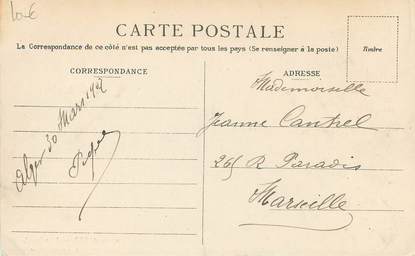 10€
CARTE POSTALE
La Correspondance de ce côté n'est pas acceptée par tous les pays (Se renseigner à la poste)
Timbre
CORRESPONDANCE
ADRESSE
Alger 30 Mars
Mademoiselle
Jeanne
R Paradis
Marseille